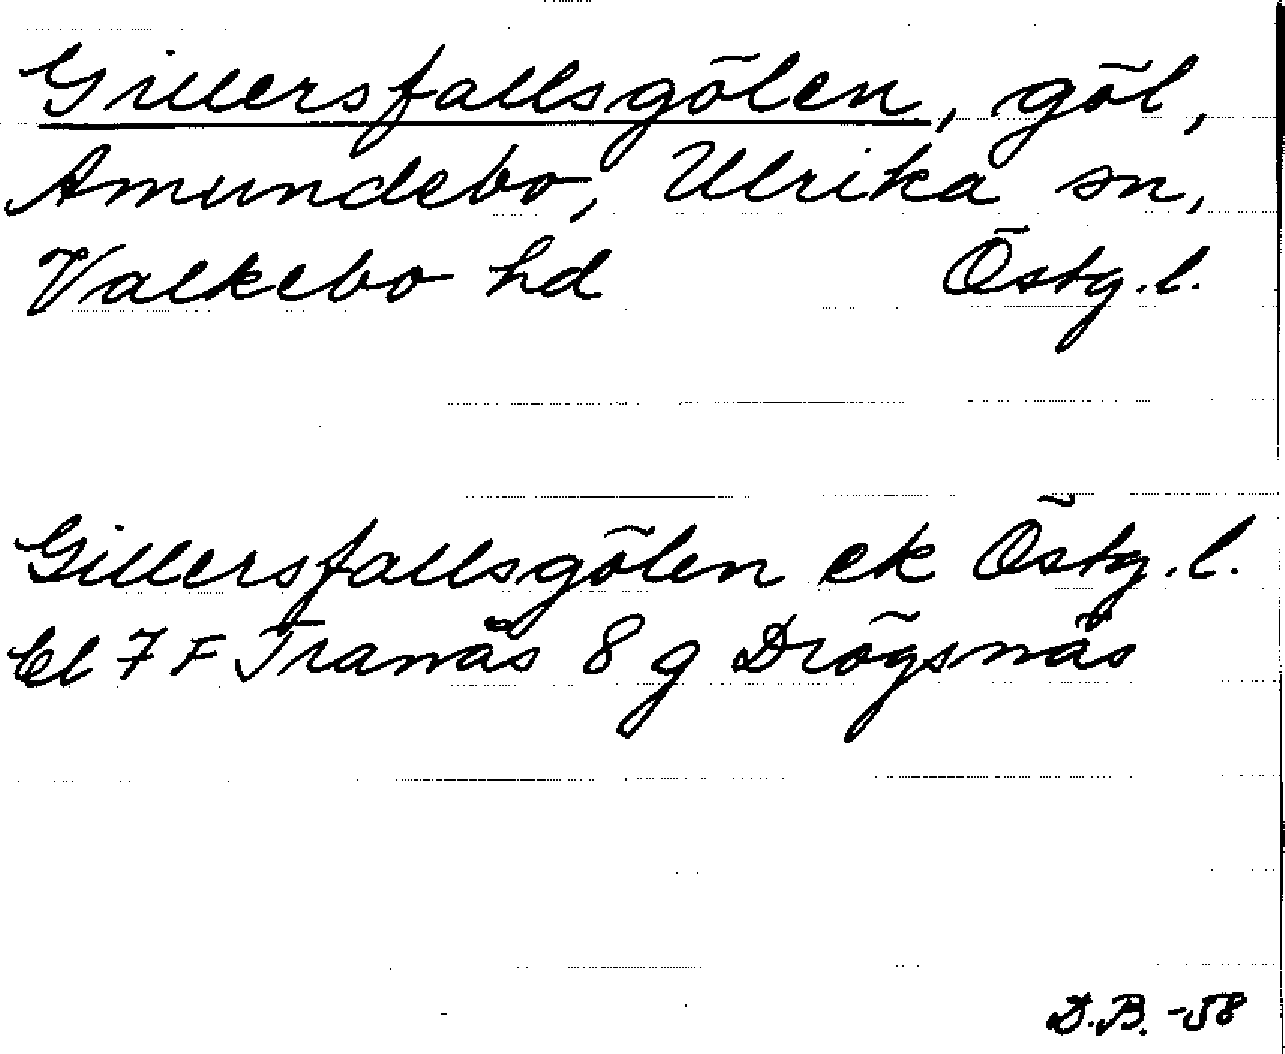 Gillersfallsgölen, göl,
Amundebo, Ulrika sn,
Valkebo hd Östg.l.
Gillersfallsgölen ek Östg.l.
bl 7 F Tranås 8 g Drögsnäs
D.B. -58